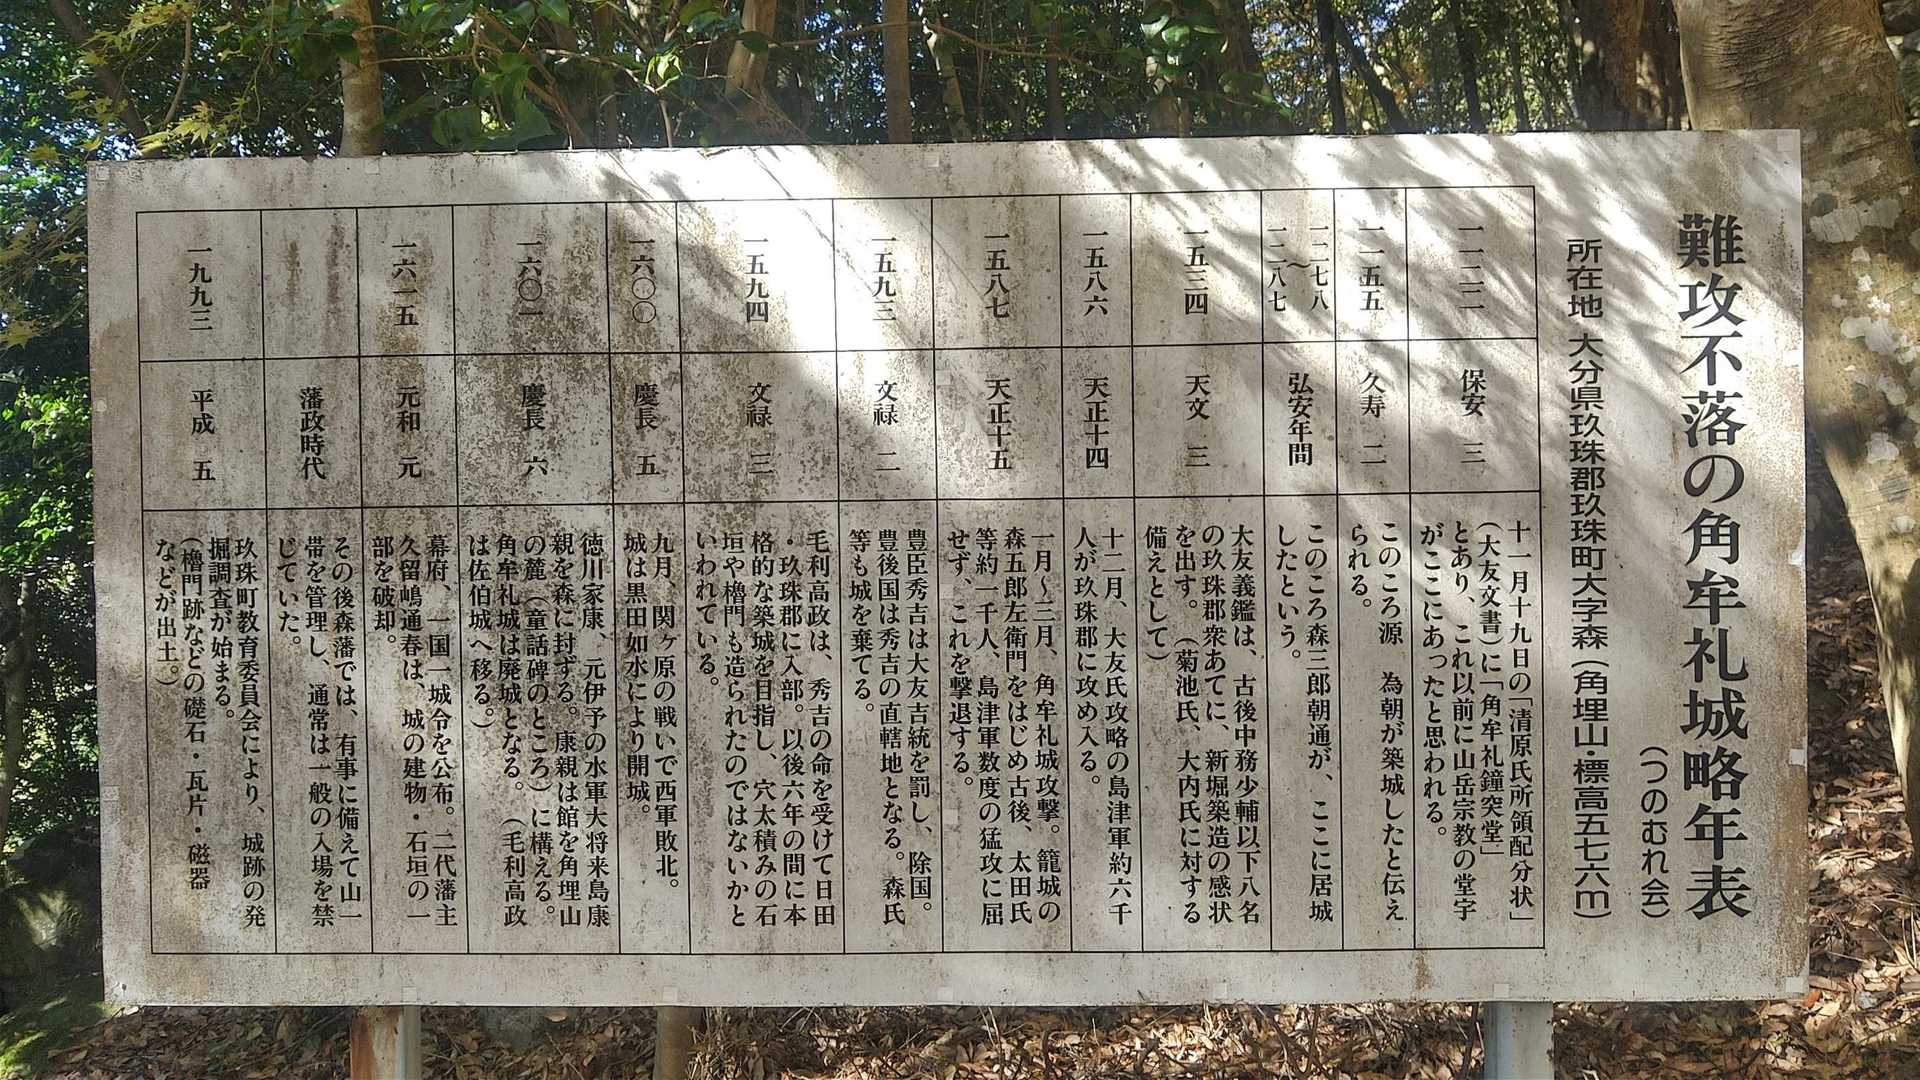 難攻不落の角牟礼城略年表
(つのむれ会)
所在地 大分県玖珠郡玖珠町大字森(角埋山・標高五七六m)
一一二二
保安 三
十一月十九日の「清原氏所領配分状」
(大友文書)に「角牟礼鐘突堂」
とあり、これ以前に山岳宗教の堂宇
がここにあったと思われる。
一一五五
久寿 二
このころ源 為朝が築城したと伝え
られる。
一二七八
〜
一二八七
弘安年間
このころ森三郎朝通が、ここに居城
したという。
一五三四
天文 三
大友義鑑は、古後中務少輔以下八名
の玖珠郡衆あてに、新堀築造の感状
を出す。(菊池氏、大内氏に対する
備えとして)
一五八六
天正十四
十二月、大友氏攻略の島津軍約六千
人が玖珠郡に攻め入る。
一五八七
天正十五
一月〜三月、角牟礼城攻撃。籠城の
森五郎左衛門をはじめ古後、太田氏
等約一千人、島津軍数度の猛攻に屈
せず、これを撃退する。
一五九三
文禄 二
豊臣秀吉は大友吉統を罰し、除国。
豊後国は秀吉の直轄地となる。森氏
等も城を棄てる。
一五九四
文禄 三
毛利高政は、秀吉の命を受けて日田
・玖珠郡に入部。以後六年の間に本
格的な築城を目指し、穴太積みの石
垣や櫓門も造られたのではないかと
いわれている。
一六〇〇
慶長 五
九月、関ヶ原の戦いで西軍敗北。
城は黒田如水により開城。
一六〇一
慶長 六
徳川家康、元伊予の水軍大将来島康
親を森に封ずる。康親は館を角埋山
の麓(童話碑のところ)に構える。
角牟礼城は廃城となる。(毛利高政
は佐伯城へ移る。)
一六一五
元和 元
幕府、一国一城令を公布。二代藩主
久留嶋通春は、城の建物・石垣の一
部を破却。
藩政時代
その後森藩では、有事に備えて山一
帯を管理し、通常は一般の入場を禁
じていた。
一九九三
平成 五
玖珠町教育委員会により、城跡の発
掘調査が始まる。
(櫓門跡などの礎石・瓦片・磁器
などが出土。)